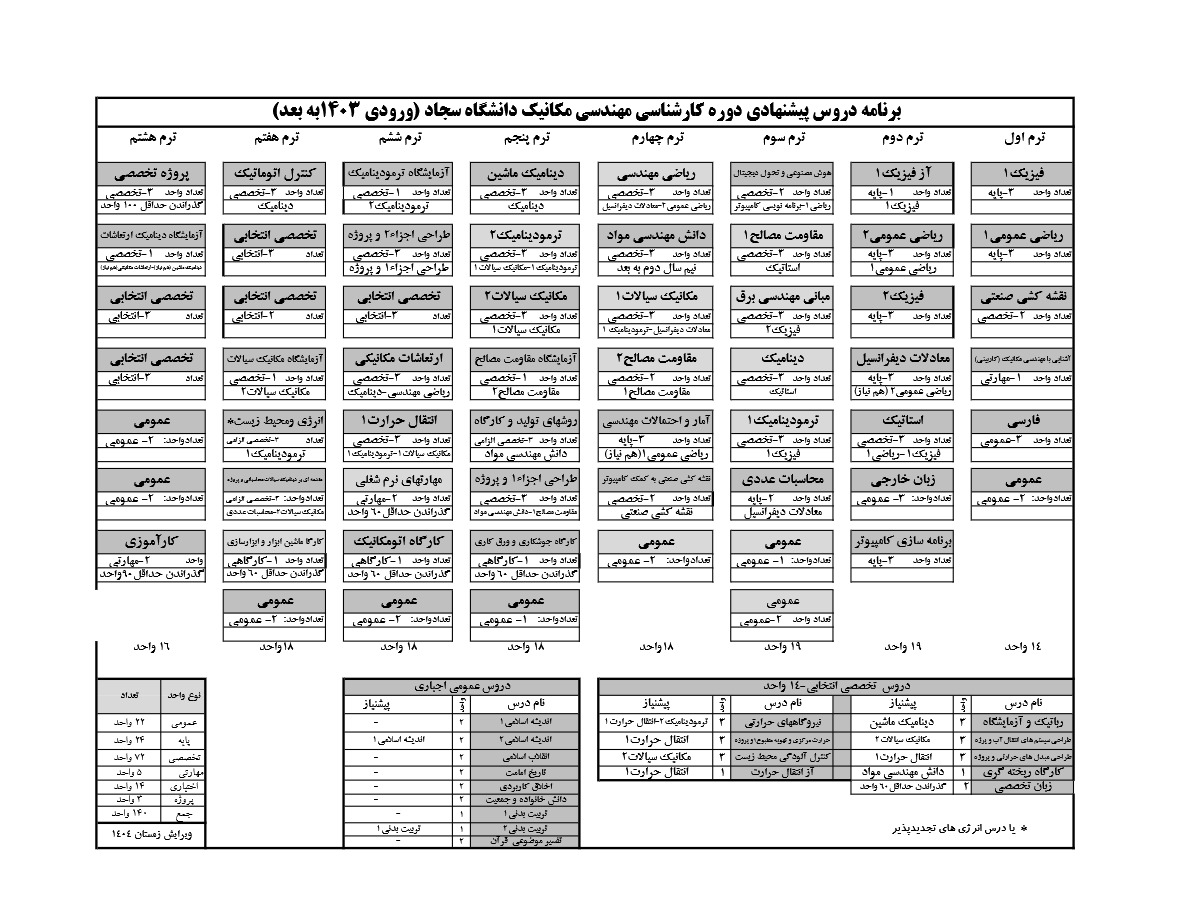 برنامه دروس پیشنهادی دوره کارشناسی مهندسی مکانیک دانشگاه سجاد (ورودی ۱۴۰۳به بعد)
ترم اول
فیزیک۱
تعداد واحد ۳-پایه
ریاضی عمومی۱
تعداد واحد ۳-پایه
نقشه کشی صنعتی
تعداد واحد ۲-تخصصی
آشنایی با مهندسی مکانیک (کاربینی)
تعداد واحد ۱-مهارتی
فارسی
تعداد واحد ۳-عمومی
عمومی
تعدادواحد: ۲- عمومی
۱۴ واحد
ترم دوم
آز فیزیک۱
تعداد واحد ۱-پایه
فیزیک۱
ریاضی عمومی۲
تعداد واحد ۳-پایه
ریاضی عمومی۱
فیزیک۲
تعداد واحد ۳-پایه
معادلات دیفرانسیل
تعداد واحد ۳-پایه
ریاضی عمومی۲ (هم نیاز)
استاتیک
تعداد واحد ۳-تخصصی
فیزیک۱-ریاضی۱
زبان خارجی
تعدادواحد: ۳- عمومی
برنامه سازی کامپیوتر
تعداد واحد ۳-پایه
۱۹ واحد
ترم سوم
هوش مصنوعی و تحول دیجیتال
تعداد واحد ۲-تخصصی
ریاضی۱-برنامه نویسی کامپیوتر
مقاومت مصالح۱
تعداد واحد ۳-تخصصی
استاتیک
مبانی مهندسی برق
تعداد واحد ۳-تخصصی
فیزیک۲
دینامیک
تعداد واحد ۳-تخصصی
استاتیک
ترمودینامیک۱
تعداد واحد ۳-تخصصی
فیزیک۱
محاسبات عددی
تعداد واحد ۲-پایه
معادلات دیفرانسیل
عمومی
تعدادواحد: ۱- عمومی
عمومی
تعداد واحد ۲-عمومی
۱۹ واحد
ترم چهارم
ریاضی مهندسی
تعداد واحد ۳-تخصصی
ریاضی عمومی۲-معادلات دیفرانسیل
دانش مهندسی مواد
تعداد واحد ۳-تخصصی
نیم سال دوم به بعد
مکانیک سیالات۱
تعداد واحد ۳-تخصصی
معادلات دیفرانسیل-ترمودینامیک ۱
مقاومت مصالح۲
تعداد واحد ۲-تخصصی
مقاومت مصالح۱
آمار و احتمالات مهندسی
تعداد واحد ۳-پایه
ریاضی عمومی۱(هم نیاز)
نقشه کشی صنعتی به کمک کامپیوتر
تعداد واحد ۲-تخصصی
نقشه کشی صنعتی
عمومی
تعدادواحد: ۲- عمومی
۱۸واحد
ترم پنجم
دینامیک ماشین
تعداد واحد ۳-تخصصی
دینامیک
ترمودینامیک۲
تعداد واحد ۳-تخصصی
ترمودینامیک ۱-مکانیک سیالات۱
مکانیک سیالات۲
تعداد واحد ۳-تخصصی
مکانیک سیالات۱
آزمایشگاه مقاومت مصالح
تعداد واحد ۱-تخصصی
مقاومت مصالح۲
روشهای تولید و کارگاه
تعداد واحد ۳-تخصصی الزامی
دانش مهندسی مواد
طراحی اجزاء۱ و پروژه
تعداد واحد ۳-تخصصی
مقاومت مصالح۱-دانش مهندسی مواد
کارگاه جوشکاری و ورق کاری
تعداد واحد ۱-کارگاهی
گذراندن حداقل ۶۰ واحد
عمومی
تعدادواحد: ۱- عمومی
۱۸ واحد
ترم ششم
آزمایشگاه ترمودینامیک
تعداد واحد ۱-تخصصی
ترمودینامیک۲
طراحی اجزاء۲ و پروژه
تعداد واحد ۳-تخصصی
طراحی اجزاء۱ و پروژه
تخصصی انتخابی
تعداد واحد ۳-انتخابی
ارتعاشات مکانیکی
تعداد واحد ۳-تخصصی
ریاضی مهندسی-دینامیک
انتقال حرارت۱
تعداد واحد ۳-تخصصی
مکانیک سیالات۱-ترمودینامیک۱
مهارتهای نرم شغلی
تعداد واحد ۲-مهارتی
گذراندن حداقل ۶۰ واحد
کارگاه اتومکانیک
تعداد واحد ۱-کارگاهی
گذراندن حداقل ۶۰ واحد
عمومی
تعدادواحد: ۲- عمومی
۱۸ واحد
ترم هفتم
کنترل اتوماتیک
تعداد واحد ۳-تخصصی
دینامیک
تخصصی انتخابی
تعداد ۳-انتخابی
تخصصی انتخابی
تعداد ۲-انتخابی
آزمایشگاه مکانیک سیالات
تعداد واحد ۱-تخصصی
مکانیک سیالات۲
انرژی ومحیط زیست*
تعداد ۲-تخصصی الزامی
ترمودینامیک۱
تعدادواحد: ۳-تخصصی الزامی
مکانیک سیالات۲-محاسبات عددی
کارگا ماشین ابزار و ابزارسازی
تعداد واحد ۱-کارگاهی
گذراندن حداقل ۶۰ واحد
عمومی
تعدادواحد: ۲- عمومی
۱۸واحد
ترم هشتم
پروژه تخصصی
تعداد واحد ۳-تخصصی
گذراندن حداقل ۱۰۰ واحد
آزمایشگاه دینامیک ارتعاشات
تعداد واحد ۱-تخصصی
تخصصی انتخابی
تعداد ۳-انتخابی
تخصصی انتخابی
تعداد ۳-انتخابی
عمومی
تعدادواحد: ۲- عمومی
عمومی
تعدادواحد: ۲- عمومی
کارآموزی
واحد ۲-مهارتی
گذراندن حداقل۹۰واحد
۱۶ واحد
دروس تخصصی انتخابی-۱۴ واحد
نام درس واحد پیشنیاز نام درس واحد پیشنیاز
رباتیک و آزمایشگاه ۳ دینامیک ماشین نیروگاههای حرارتی ۳ ترمودینامیک۲-انتقال حرارت۱
طراحی سیستم های انتقال آب و پروژه ۳ مکانیک سیالات۲ حرارت مرکزی و تهویه مطبوع۱ و پروژه ۳ انتقال حرارت۱
طراحی مبدل های حرارتی و پروژه ۳ انتقال حرارت۱ کنترل آلودگی محیط زیست ۳ مکانیک سیالات۲
کارگاه ریخته گری ۱ دانش مهندسی مواد آز انتقال حرارت ۱ انتقال حرارت۱
زبان تخصصی ۲ گذراندن حداقل ۶۰ واحد
* یا درس انرژی های تجدیدپذیر
دروس عمومی اجباری
نام درس واحد پیشنیاز
اندیشه اسلامی۱ ۲ -
اندیشه اسلامی۲ ۲ اندیشه اسلامی۱
انقلاب اسلامی ۲ -
تاریخ امامت ۲ -
اخلاق کاربردی ۲ -
دانش خانواده و جمعیت ۲ -
تربیت بدنی۱ ۱ -
تربیت بدنی۲ ۱ تربیت بدنی۱
تفسیر موضوعی قرآن ۲ -
نوع واحد تعداد
عمومی ۲۲ واحد
پایه ۲۴ واحد
تخصصی ۷۲ واحد
مهارتی ۵ واحد
اختیاری ۱۴ واحد
پروژه ۳ واحد
جمع ۱۴۰ واحد
ویرایش زمستان ۱۴۰۴